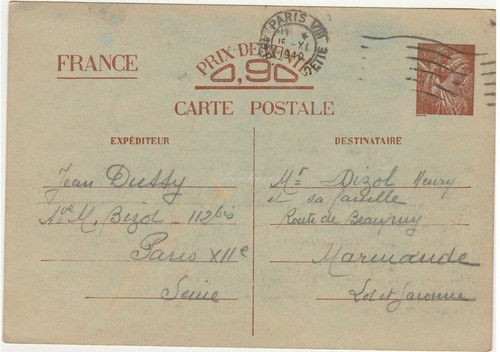 PARIS VIII
15 -XI
1940
FRANCE
PRIX DE VENTE
0,90
CARTE POSTALE
EXPÉDITEUR
DESTINATAIRE
Jean Dussy
Mr Dizol Henry
et sa famille
Ave M. Bizot - 112 bis
Route de Beaupuy
Paris XIIe
Marmande
Seine
Lot et Garonne